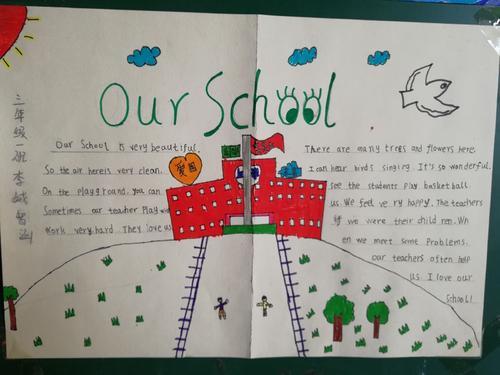 Our School
三年级一班 李
Our School is very beautiful. There are many trees and flowers here.
So the air here is very clean. 爱国 I can hear birds singing. It's so wonderful.
On the playground. You can see the students play basketball.
Sometimes our teacher Play with us. We feel very happy. The teachers
Work very hard. They love us we were their child ren. Wh
en we meet some Problems.
our teachers often help
us. I love our
School!